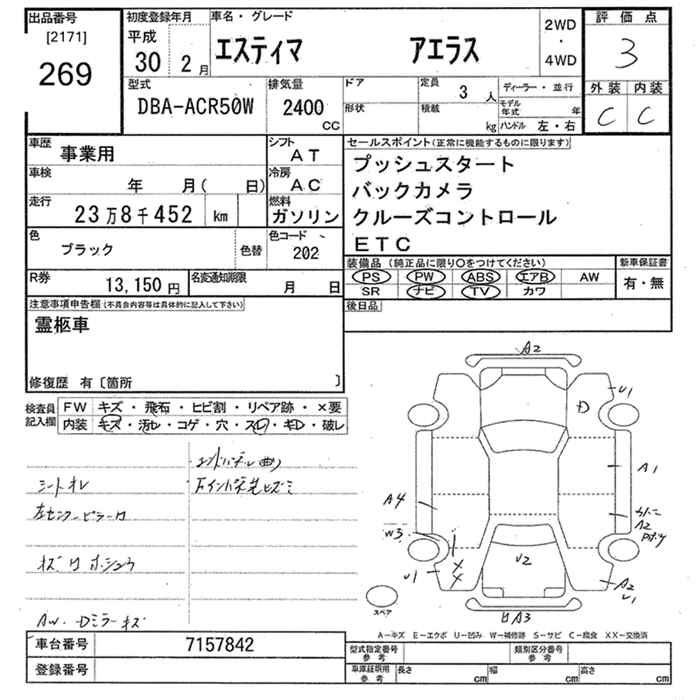 出品番号
[2171]
269
初度登録年月
平成
30 2月
車名・グレード
エスティマ アエラス
2WD
・
4WD
評価点
3
型式
DBA-ACR50W
排気量
2400
CC
ドア
形状
定員
3 人
積載
kg
ディーラー・並行
モデル年式 年
ハンドル 左・右
外装 内装
C C
車歴
事業用
シフト
AT
車検
年 月( 日)
冷房
AC
走行
23万8千452 km
燃料
ガソリン
色
ブラック
色替
色コード
202
R券
13,150円
名変通知期限
月 日
セールスポイント(正常に機能するものに限ります)
プッシュスタート
バックカメラ
クルーズコントロール
ETC
装備品(純正品に限り○をつけてください)
PS PW ABS エアB AW
SR ナビ TV カワ
新車保証書
有・無
後日品
注意事項申告欄(不具合内容等は具体的に記入して下さい)
霊柩車
修復歴 有〔箇所 〕
検査員
記入欄
FW キズ・飛石・ヒビ割・リペア跡・×要
内装 キズ・汚レ・コゲ・穴・スレ・キレ・破レ
シートオレ
AW. Dミラーキズ
A2
U1
D
A1
A4
A2
W3
U1
U2
A2
U1
A3
スペア
A−キズ E−エクボ U−凹み W−補修跡 S−サビ C−腐食 XX−交換済
車台番号
7157842
登録番号
型式指定番号
参考
類別区分番号
参考
車庫証明用
参考
長さ cm
幅 cm
高さ cm